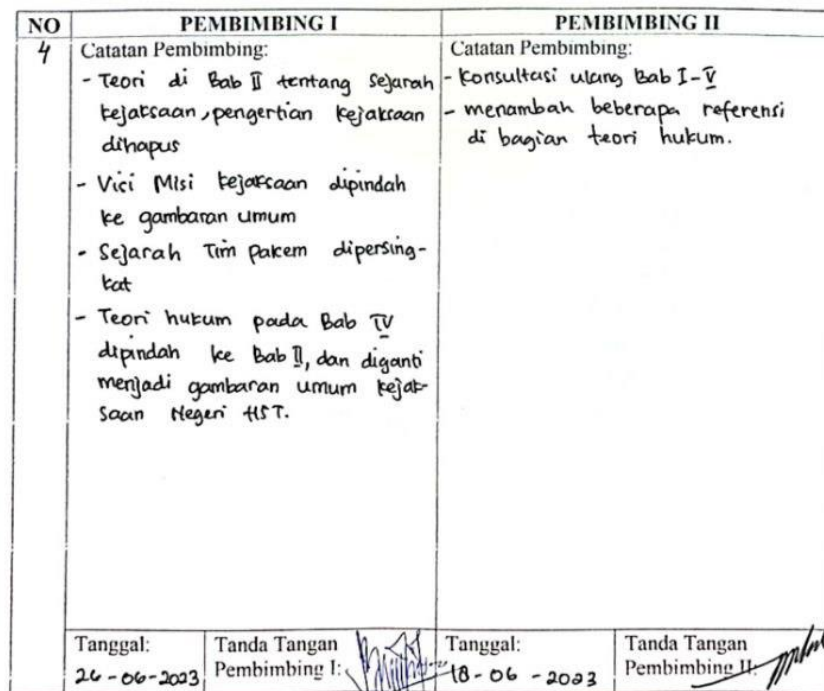 NO
PEMBIMBING I
PEMBIMBING II
4
Catatan Pembimbing:
- Teori di Bab II tentang sejarah
kejaksaan, pengertian kejaksaan
dihapus
- Vici Misi kejaksaan dipindah
ke gambaran umum
- Sejarah Tim pakem dipersing-
kat
- Teori hukum pada Bab IV
dipindah ke Bab II, dan diganti
menjadi gambaran umum kejak-
saan Negeri HST.
Catatan Pembimbing:
- Konsultasi ulang Bab I-V
- menambah beberapa referensi
di bagian teori hukum.
Tanggal:
26-06-2023
Tanda Tangan
Pembimbing I:
Tanggal:
18-06-2023
Tanda Tangan
Pembimbing II: